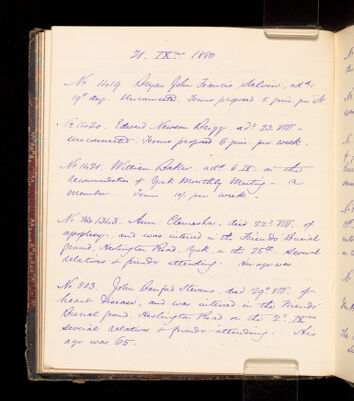 21. IXmo 1880
No 1419 Bryan John Francis Salvin, adm.
19th day. Unconnected. Terms proposed 5 gns. per wk.
No 1420. Edward Newsom Brigg admd. 23. VIII.
unconnected. Terms proposed 6 gns. per week.
No 1421. William Baker. admd 6. IX. on the
recommendation of York Monthly Meeting - a
member. Terms per week.
No 1343. Ann Clemesha, died 22d. VIII. of
apoplexy. and was interred in the Friends Burial
ground, Heslington Road, York, on the 25th. Several
relatives & friends attending. Her age was
No 503 John Stevens. died 29th VIII. of
heart disease, and was interred in the Friends'
Burial ground, Heslington Road on the 2d. IXmo
several relatives & friends attending. His
age was 65.